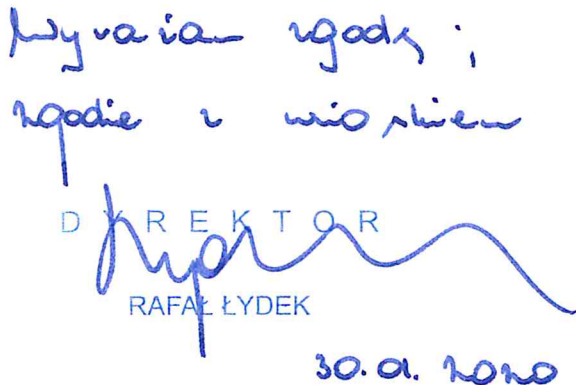 Wyrażam zgodę ;
zgodnie z wnioskiem
DYREKTOR
RAFAŁ ŁYDEK
30.01.2020